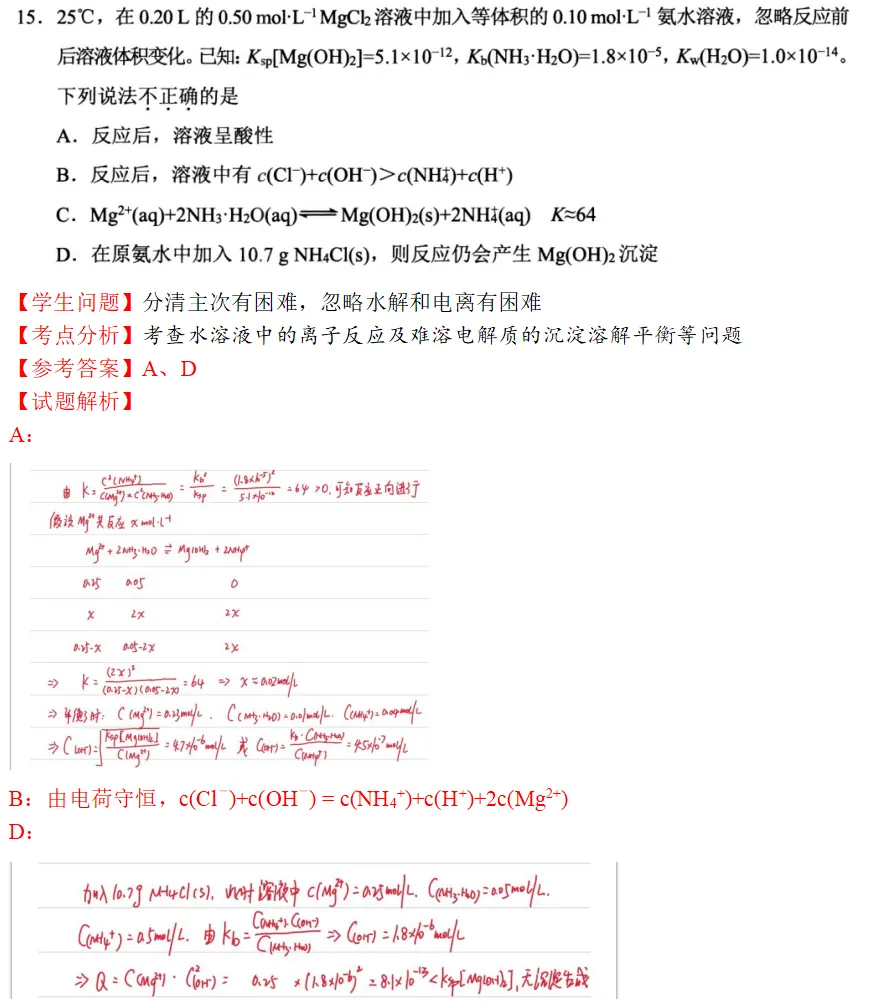 15．25℃，在 0.20 L 的 0.50 mol·L⁻¹ MgCl₂ 溶液中加入等体积的 0.10 mol·L⁻¹ 氨水溶液，忽略反应前
后溶液体积变化。已知：Ksp[Mg(OH)₂]=5.1×10⁻¹²，Kb(NH₃·H₂O)=1.8×10⁻⁵，Kw(H₂O)=1.0×10⁻¹⁴。
下列说法不正确的是
A．反应后，溶液呈酸性
B．反应后，溶液中有 c(Cl⁻)+c(OH⁻)＞c(NH₄⁺)+c(H⁺)
C．Mg²⁺(aq)+2NH₃·H₂O(aq)⇌Mg(OH)₂(s)+2NH₄⁺(aq) K≈64
D．在原氨水中加入 10.7 g NH₄Cl(s)，则反应仍会产生 Mg(OH)₂ 沉淀
【学生问题】分清主次有困难，忽略水解和电离有困难
【考点分析】考查水溶液中的离子反应及难溶电解质的沉淀溶解平衡等问题
【参考答案】A、D
【试题解析】
A：
由 K = c²(NH₄⁺)/c(Mg²⁺)×c²(NH₃·H₂O) = Kb²/Ksp = (1.8×10⁻⁵)²/5.1×10⁻¹² = 64 >0，可知反应正向进行
假设 Mg²⁺共反应 x mol·L⁻¹
Mg²⁺ + 2NH₃·H₂O ⇌ Mg(OH)₂ + 2NH₄⁺
0.25 0.05 0
x 2x 2x
0.25-x 0.05-2x 2x
⇒ K = (2x)²/(0.25-x)(0.05-2x) = 64 ⇒ x = 0.02mol/L
⇒ 平衡时：C(Mg²⁺)=0.23mol/L．C(NH₃·H₂O)=0.01mol/L．C(NH₄⁺)=0.04mol/L
⇒ C(OH⁻)=√Ksp[Mg(OH)₂]/C(Mg²⁺) = 4.7×10⁻⁶mol/L 或 C(OH⁻)=Kb·C(NH₃·H₂O)/C(NH₄⁺) = 4.5×10⁻⁷mol/L
B：由电荷守恒，c(Cl⁻)+c(OH⁻) = c(NH₄⁺)+c(H⁺)+2c(Mg²⁺)
D：
加入 10.7g NH₄Cl(s)，此时溶液中 C(Mg²⁺)=0.25mol/L．C(NH₃·H₂O)=0.05mol/L．
C(NH₄⁺)=0.5mol/L．由 Kb=C(NH₄⁺)·C(OH⁻)/C(NH₃·H₂O) ⇒ C(OH⁻)=1.8×10⁻⁶mol/L
⇒ Q = C(Mg²⁺)·C²(OH⁻) = 0.25 ×(1.8×10⁻⁶)² = 8.1×10⁻¹³ < Ksp[Mg(OH)₂]，无沉淀生成